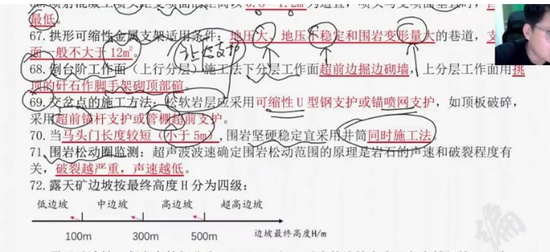 最低。
67. 拱形可缩性金属支架适用条件：地压大、地压不稳定和围岩变形量大的巷道，支
面一般不大于 12㎡。
让压支护
68. 倒台阶工作面（上行分层）施工法下分层工作面超前边掘边砌墙，上分层工作面用挑
顶的矸石作脚手架砌顶部碹。
69. 交岔点的施工方法：松软岩层应采用可缩性 U 型钢支护或锚喷网支护，如顶板破碎，
采用超前锚杆支护或管棚超前支护。
70. 当马头门长度较短（小于 5m），围岩坚硬稳定宜采用井筒同时施工法。
71. 围岩松动圈监测：超声波波速确定围岩松动范围的原理是岩石的声速和破裂程度有
关，破裂越严重，声速越低。
72. 露天矿边坡按最终高度 H 分为四级：
低边坡 中边坡 高边坡 超高边坡
100m 300m 500m 边坡最终高度H/m